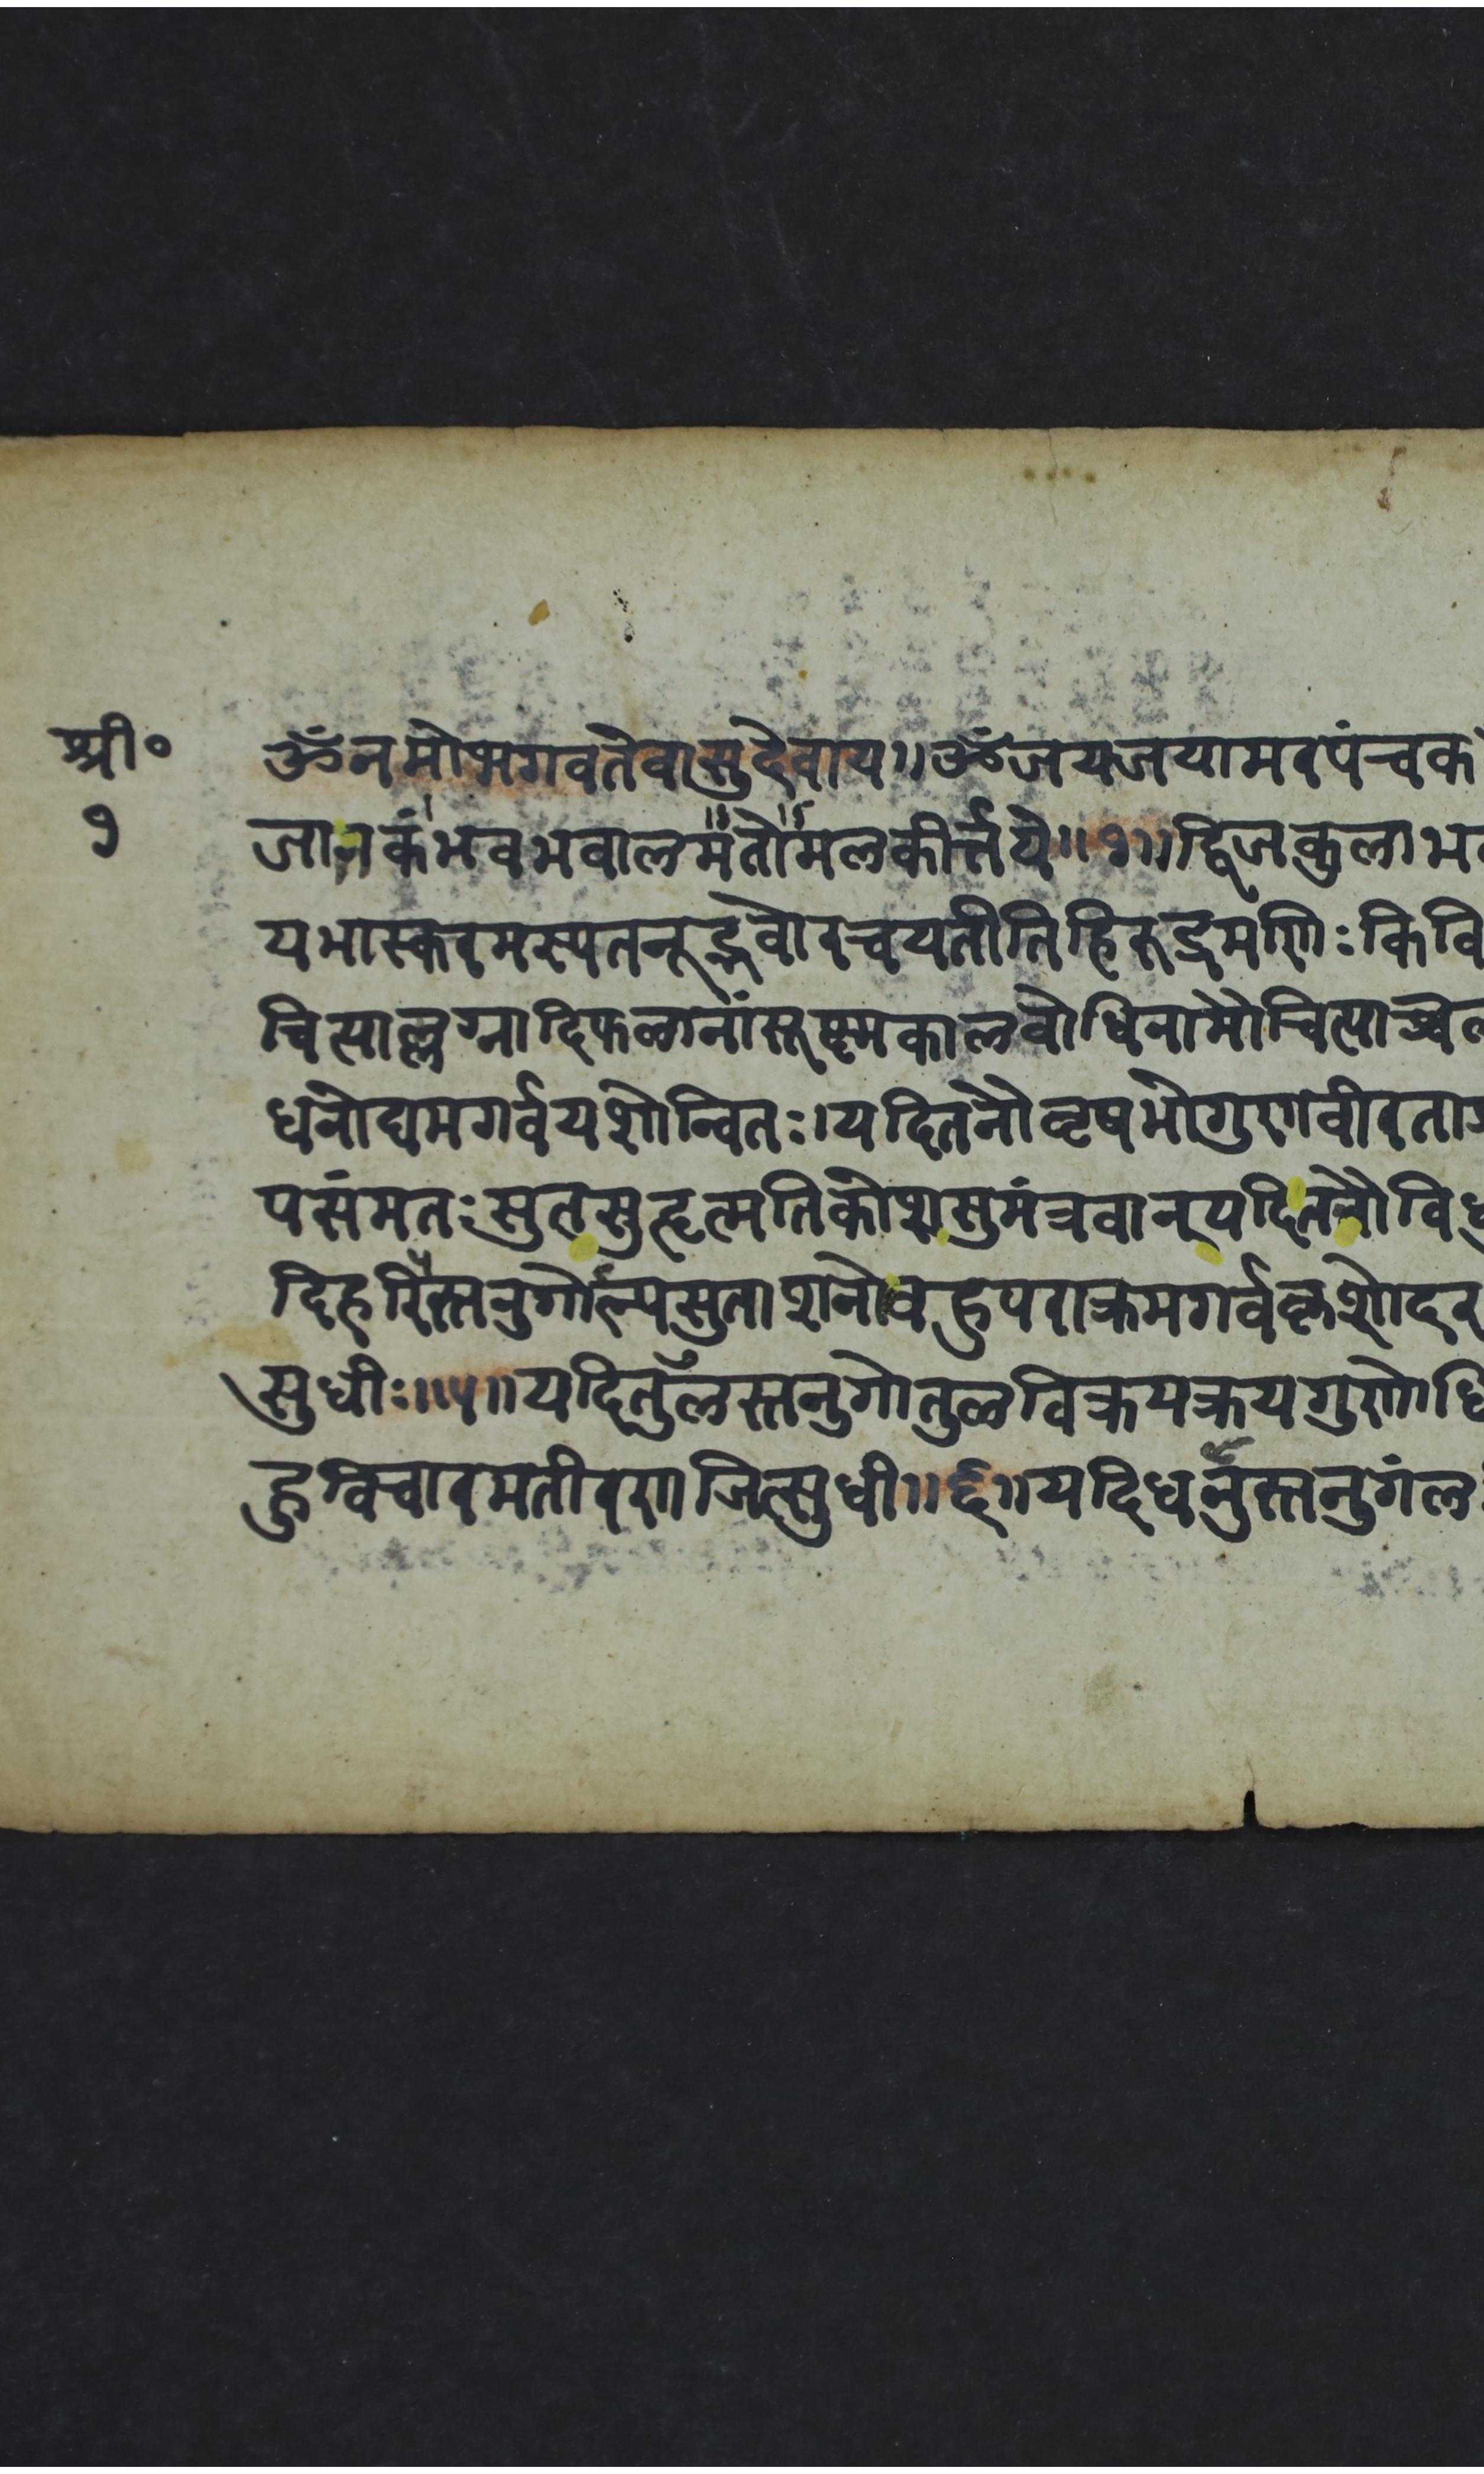 श्री०
१
ॐनमोभगवतेवासुदेवाय॥ॐजयजयामरपंचक
जातकंभवभवालमतोमलकीर्त्तये॥१॥द्विजकुलाभ
यभास्करमस्यतनूद्भवोरचयतीतिहिरुद्रमणिःकिवि
चित्याल्लग्नादिफळानांसूक्ष्मकालबोधिनामौचित्याच्चे
धनोद्यमगर्वयशोन्वितः।यदितनौवृषभोगुणवीरता
पसंमतःसुतसुहृत्मतिकोशसुमंत्रवान्यदितनौवि
दिहरिस्तनुगोल्पसुताशनोवहुपराक्रमगर्वकृशोदर
सुधीः॥५॥यदितुलस्तनुगोतुळविक्रयक्रयगुणोधि
हुविचारमतीरणजित्सुधी॥६॥यदिधनुस्तनुगंल